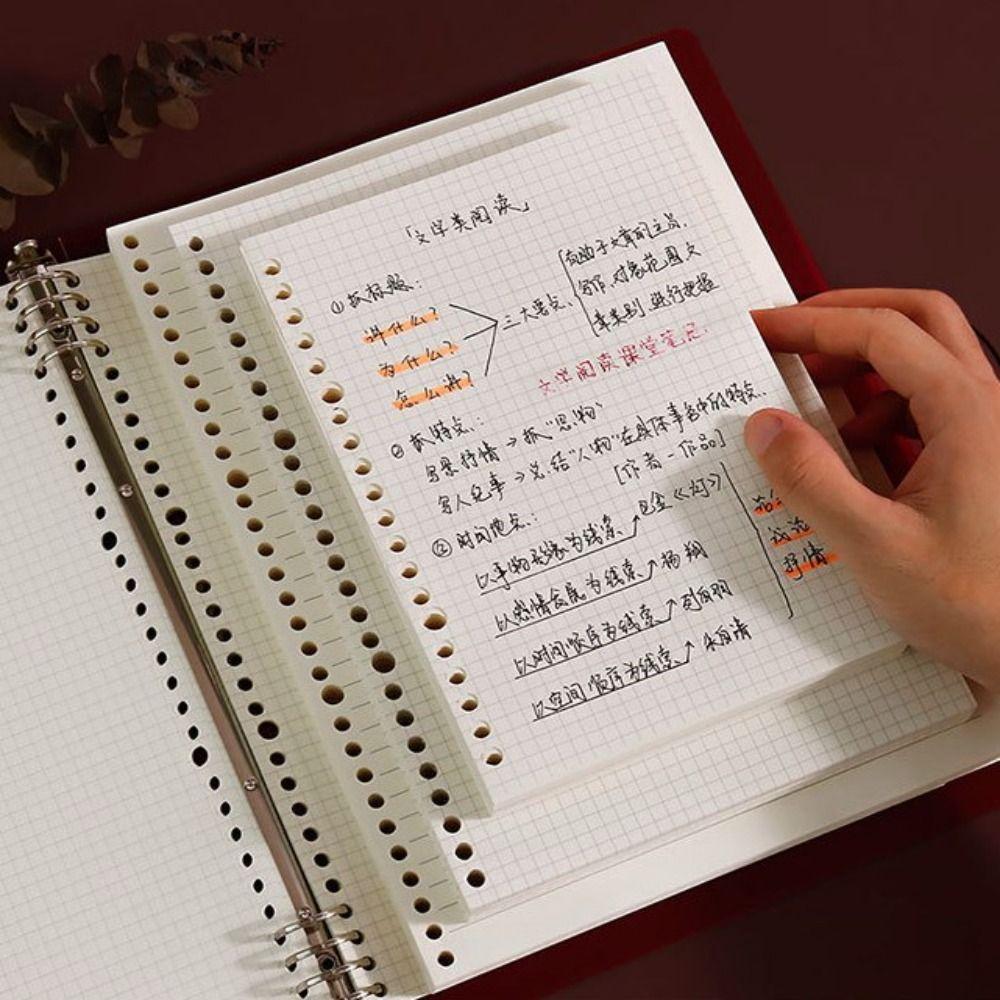 「文学类阅读」
① 抓标题:
讲什么?
为什么?
怎么讲?
三大要点
有助于文章的主旨、
写作、对象范围文
章类别,进行把握
文学阅读课堂笔记
② 抓特点:
写景抒情→抓“景物”
写人纪事→总结“人物”在具体事名中的特点.
[作者-作品]
③ 时间地点:
以事物形象为线索↗巴金《灯》
以感情发展为线索↗杨朔
以时间顺序为线索↗刘白羽
以空间顺序为线索↗朱自清
议论
抒情